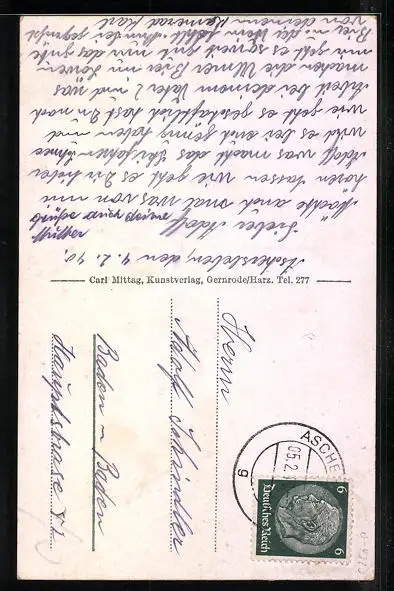 Aschersleben, den 4. 2. 40.
Lieber Adolf
Möchte auch mal was von mir
hören lassen wie geht es Dir lieber
Adolf was macht das Skifahren Schnee
wird es bei euch genug haben und
wie geht es geschäftlich hast Du noch
Arbeit bei deinem Vater? und was
machen die Ulmer Bier im Löwen
mir geht es soweit nur das gute
Bier u. der Wein fehlt
von deinem Kamerad Karl
Grüße auch deine
Mutter
Carl Mittag, Kunstverlag, Gernrode/Harz. Tel. 277
Herrn
Adolf Schindler
Baden - Baden
Hauptstrasse
ASCHE
05.2.
g
6 6
Deutsches Reich